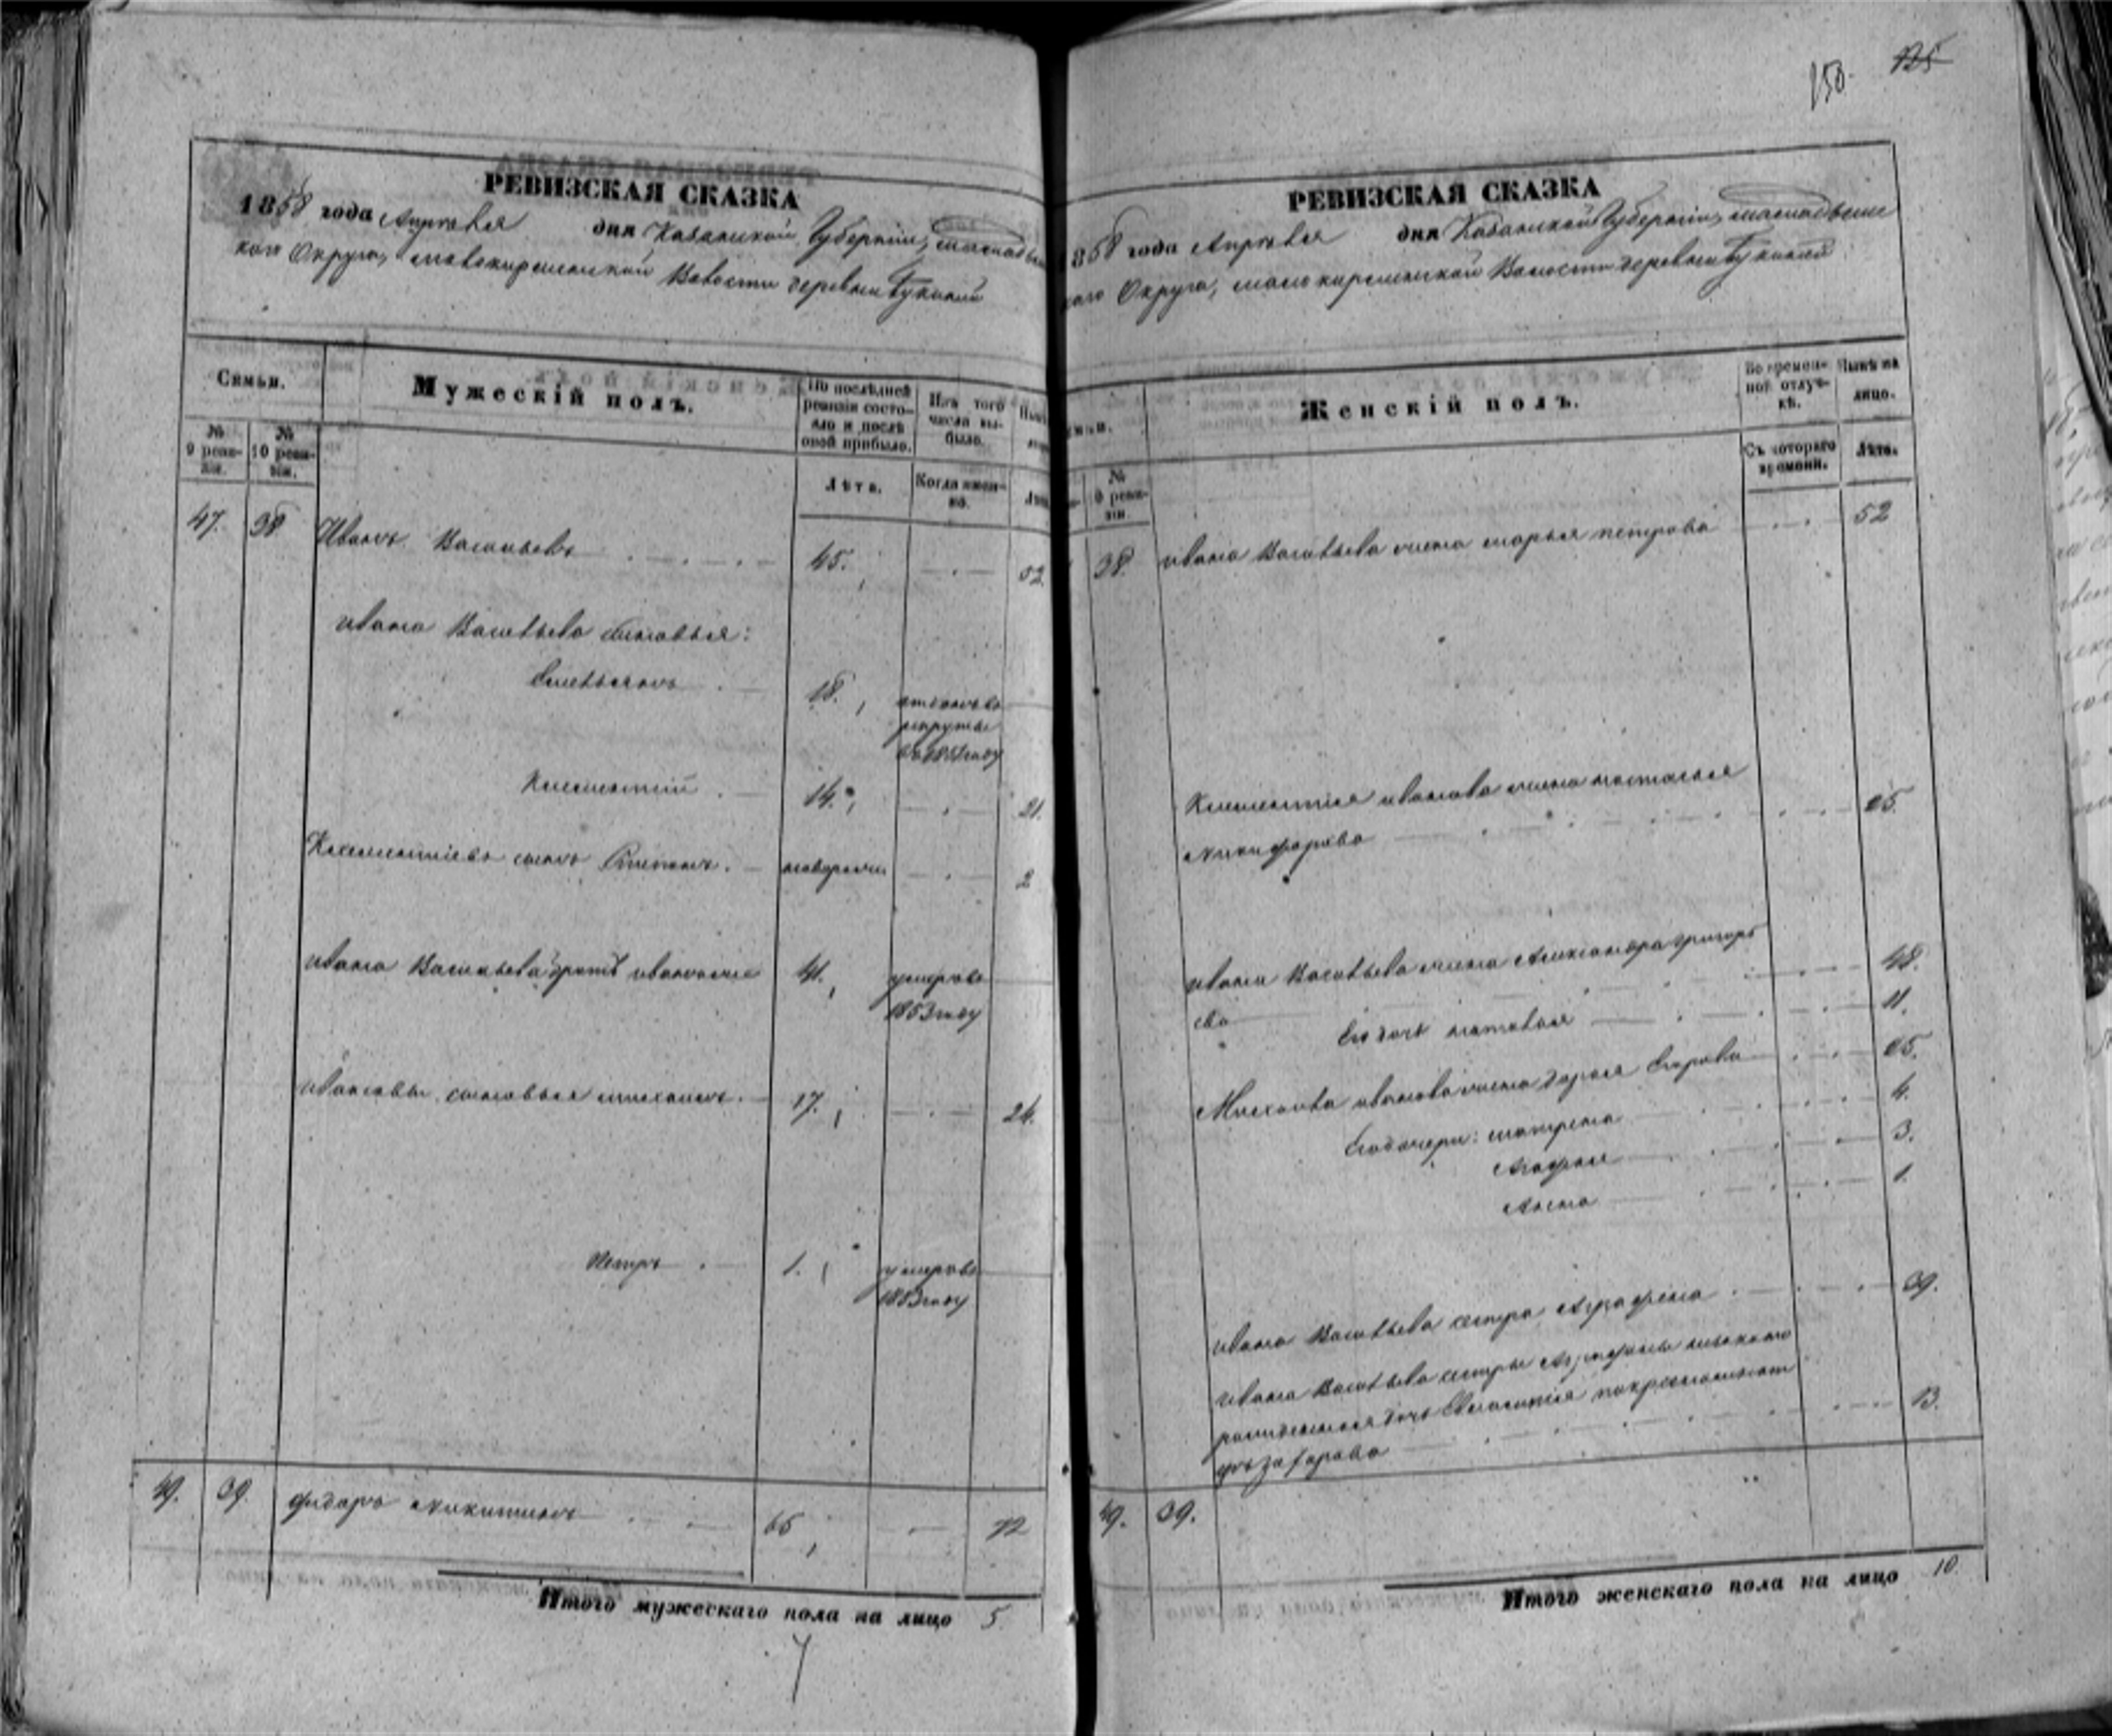 РЕВИЗСКАЯ СКАЗКА
1858 года Апрѣля дня Казанской Губерніи,
кого Округа, Волости деревни
Семьи.
Мужескій полъ.
По послѣдней ревизіи состояло и послѣ оной прибыло.
Изъ того числа выбыло.
№ 9 ревизіи.
№ 10 ревизіи.
Лѣта.
Когда именно.
47. 38 Иванъ Васильевъ 45. 52.
Ивана Васильева сыновья:
18. отданъ въ
рекруты
въ 1851 году
Климентій 14. 21.
Климентіевъ сынъ Степанъ. новорожден 2
Ивана Васильева братъ Иванъ 41. умеръ въ
1853 году
Ивановы сыновья Михаилъ. 17. 24.
Петръ 1. умеръ въ
1853 году
49. 39. Федоръ Никитинъ 65 72
Итого мужескаго пола на лицо 5.
150. 125
РЕВИЗСКАЯ СКАЗКА
1858 года Апрѣля дня Казанской Губерніи,
Округа, Волости деревни
Женскій полъ.
Во временной отлучкѣ.
Нынѣ на лицо.
Съ котораго времени.
Лѣта.
38. Ивана Васильева жена Марья Петрова 52
Климентія Иванова жена Настасья
Никифорова 25.
Ивана Васильева жена Александра Григорь
ева 48.
Его дочь Наталья 11.
Михаила Иванова жена Дарья Егорова 25.
Его дочери: Матрена 4.
Агафья 3.
Анна 1.
Ивана Васильева сестра Аграфена 39.
Ивана Васильева сестры Аграфены незаконно
рожденная дочь 13.
49. 39.
Итого женскаго пола на лицо 10